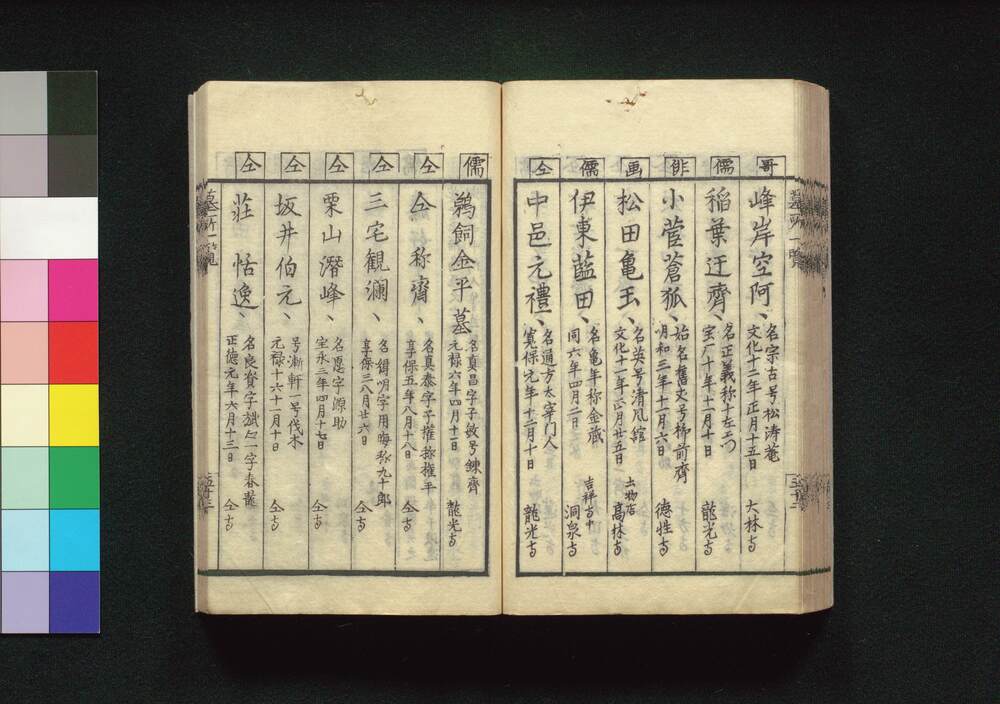 墓所一覧
哥
峰岸空阿、
名宗古号松涛菴
文化十二年正月十五日
大林寺
儒
稲葉迂齊、
名正義称十左エ门
宝广十年十一月十日
龍光寺
俳
小菅蒼狐、
始名舊丈号柳前齊
明和三年十一月六日
德性寺
画
松田亀玉、
名柴号清风館
文化十一年六月廿五日
土物店
高林寺
儒
伊東藍田、
名亀年称金蔵
同六年四月二日
吉祥寺中
洞泉寺
仝
中邑元禮、
名通方太宰门人
寛保元年十二月十日
龍光寺
儒
鵜飼金平墓
名真昌字子敏号錬齊
元禄六年四月十一日
龍光寺
仝
仝称齋、
名真泰字子權称權平
享保五年八月十八日
仝寺
仝
三宅観瀾、
名緝明字用晦称九十郎
享保三八月廿六日
仝寺
仝
栗山潛峰、
名愿字源助
宝永三年四月十七日
仝寺
仝
坂井伯元、
号漸軒一号伐木
元禄十六十一月十日
仝寺
仝
荘恬逸、
正德元年六月十三日
仝寺
墓所一覧